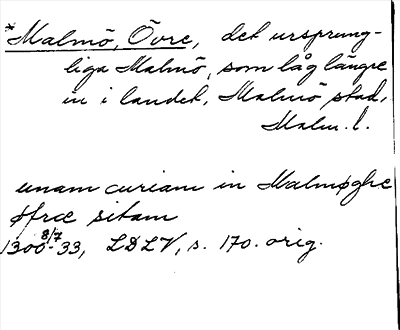 *Malmö, Övre, det ursprung-
liga Malmö, som låg längre
in i landet, Malmö stad,
Malm. l.
unam curiam in Malmøghe
øfræ sitam
1300 8/7 - 33, LDLV, s. 170. orig.